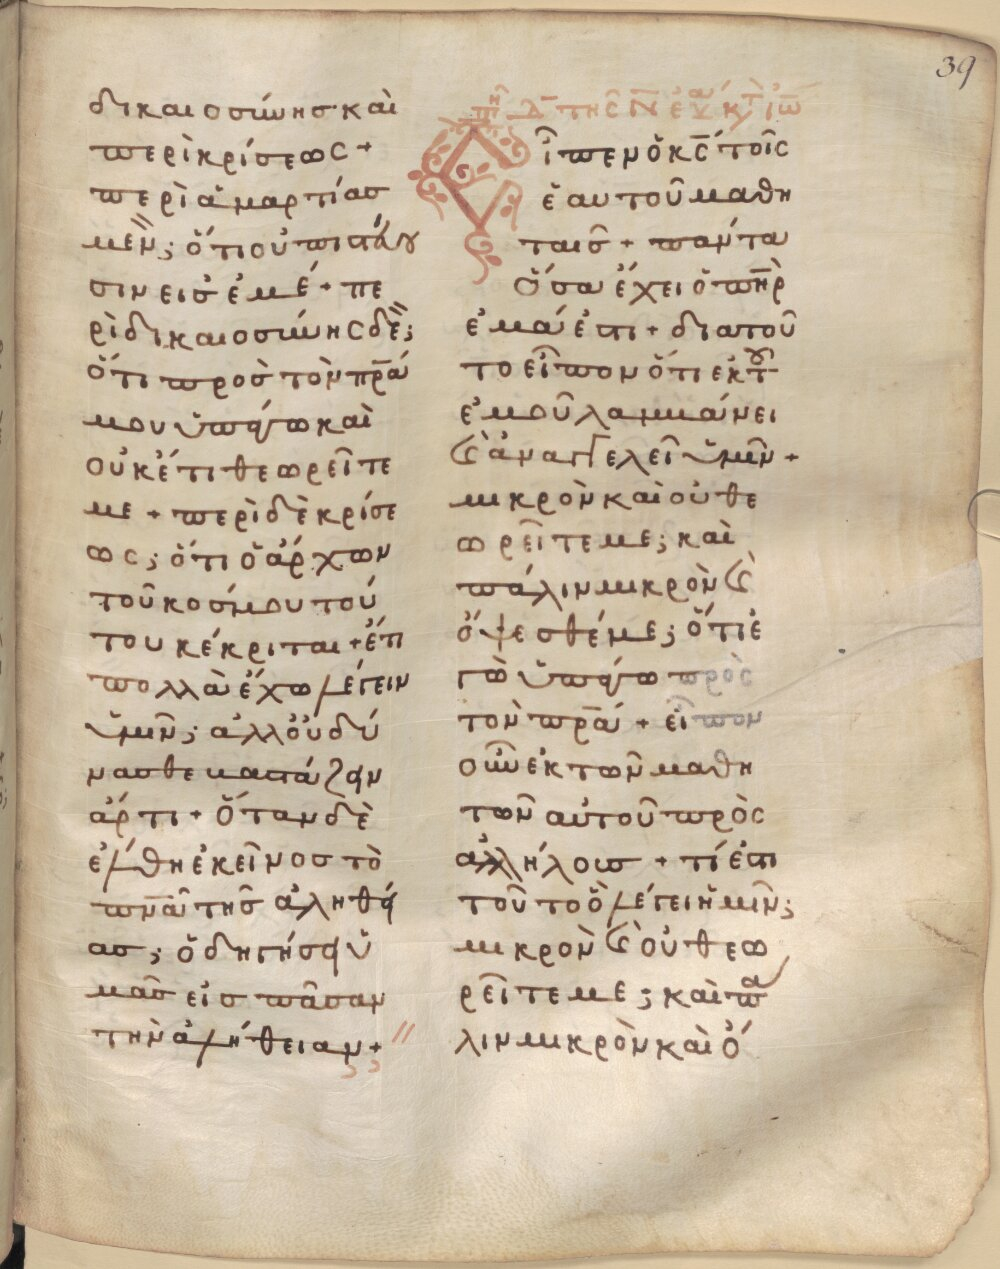 39
δικαιοσύνης· καὶ
περὶ κρίσεως +
περὶ ἁμαρτίας
μὲν; ὅτι οὐ πιστεύου
σιν εἰς ἐμέ + πε
ρὶ δικαιοσύνης δὲ;
ὅτι πρὸς τὸν πρ̅ά
μου ὑπάγω καὶ
οὐκέτι θεωρεῖτε
με + περὶ δὲ κρίσε
ως; ὅτι ὁ ἄρχων
τοῦ κόσμου τού
του κέκριται + ἔτι
πολλὰ ἔχω λέγειν
ὑμῖν; ἀλλ οὐ δύ
νασθε βαστάζειν
ἄρτι + Ὅταν δὲ
ἔλθη ἐκεῖνος τὸ
πν̅α τῆς ἀληθεί
ας; ὁδηγήσει ὑ
μᾶς εἰς πᾶσαν
τὴν ἀλήθειαν +
τῆς
Εἶπεν ὁ κς̅ τοῖς
ἑαυτοῦ μαθη
ταῖς + πάντα
Ὅσα ἔχει ὁ πη̅ρ
ἐμά ἐστι + διατοῦ
το εἶπον ὅτι ἐκ τοῦ
ἐμοῦ λαμβάνει
καὶ ἀναγγελεῖ ὑμῖν +
μικρὸν καὶ οὐ θε
ωρεῖτε με; καὶ
πάλιν μικρὸν καὶ
ὄψεσθέ με; ὅτι ἐ
γὼ ὑπάγω πρὸς
τὸν πρ̅α + εἶπον
οὖν ἐκ τῶν μαθη
τῶν αὐτοῦ πρὸς
ἀλλήλους + τί ἐστι
τοῦτο ὃ λέγει ἡμῖν;
μικρὸν καὶ οὐ θεω
ρεῖτε με; καὶ πά
λιν μικρὸν καὶ ὄ